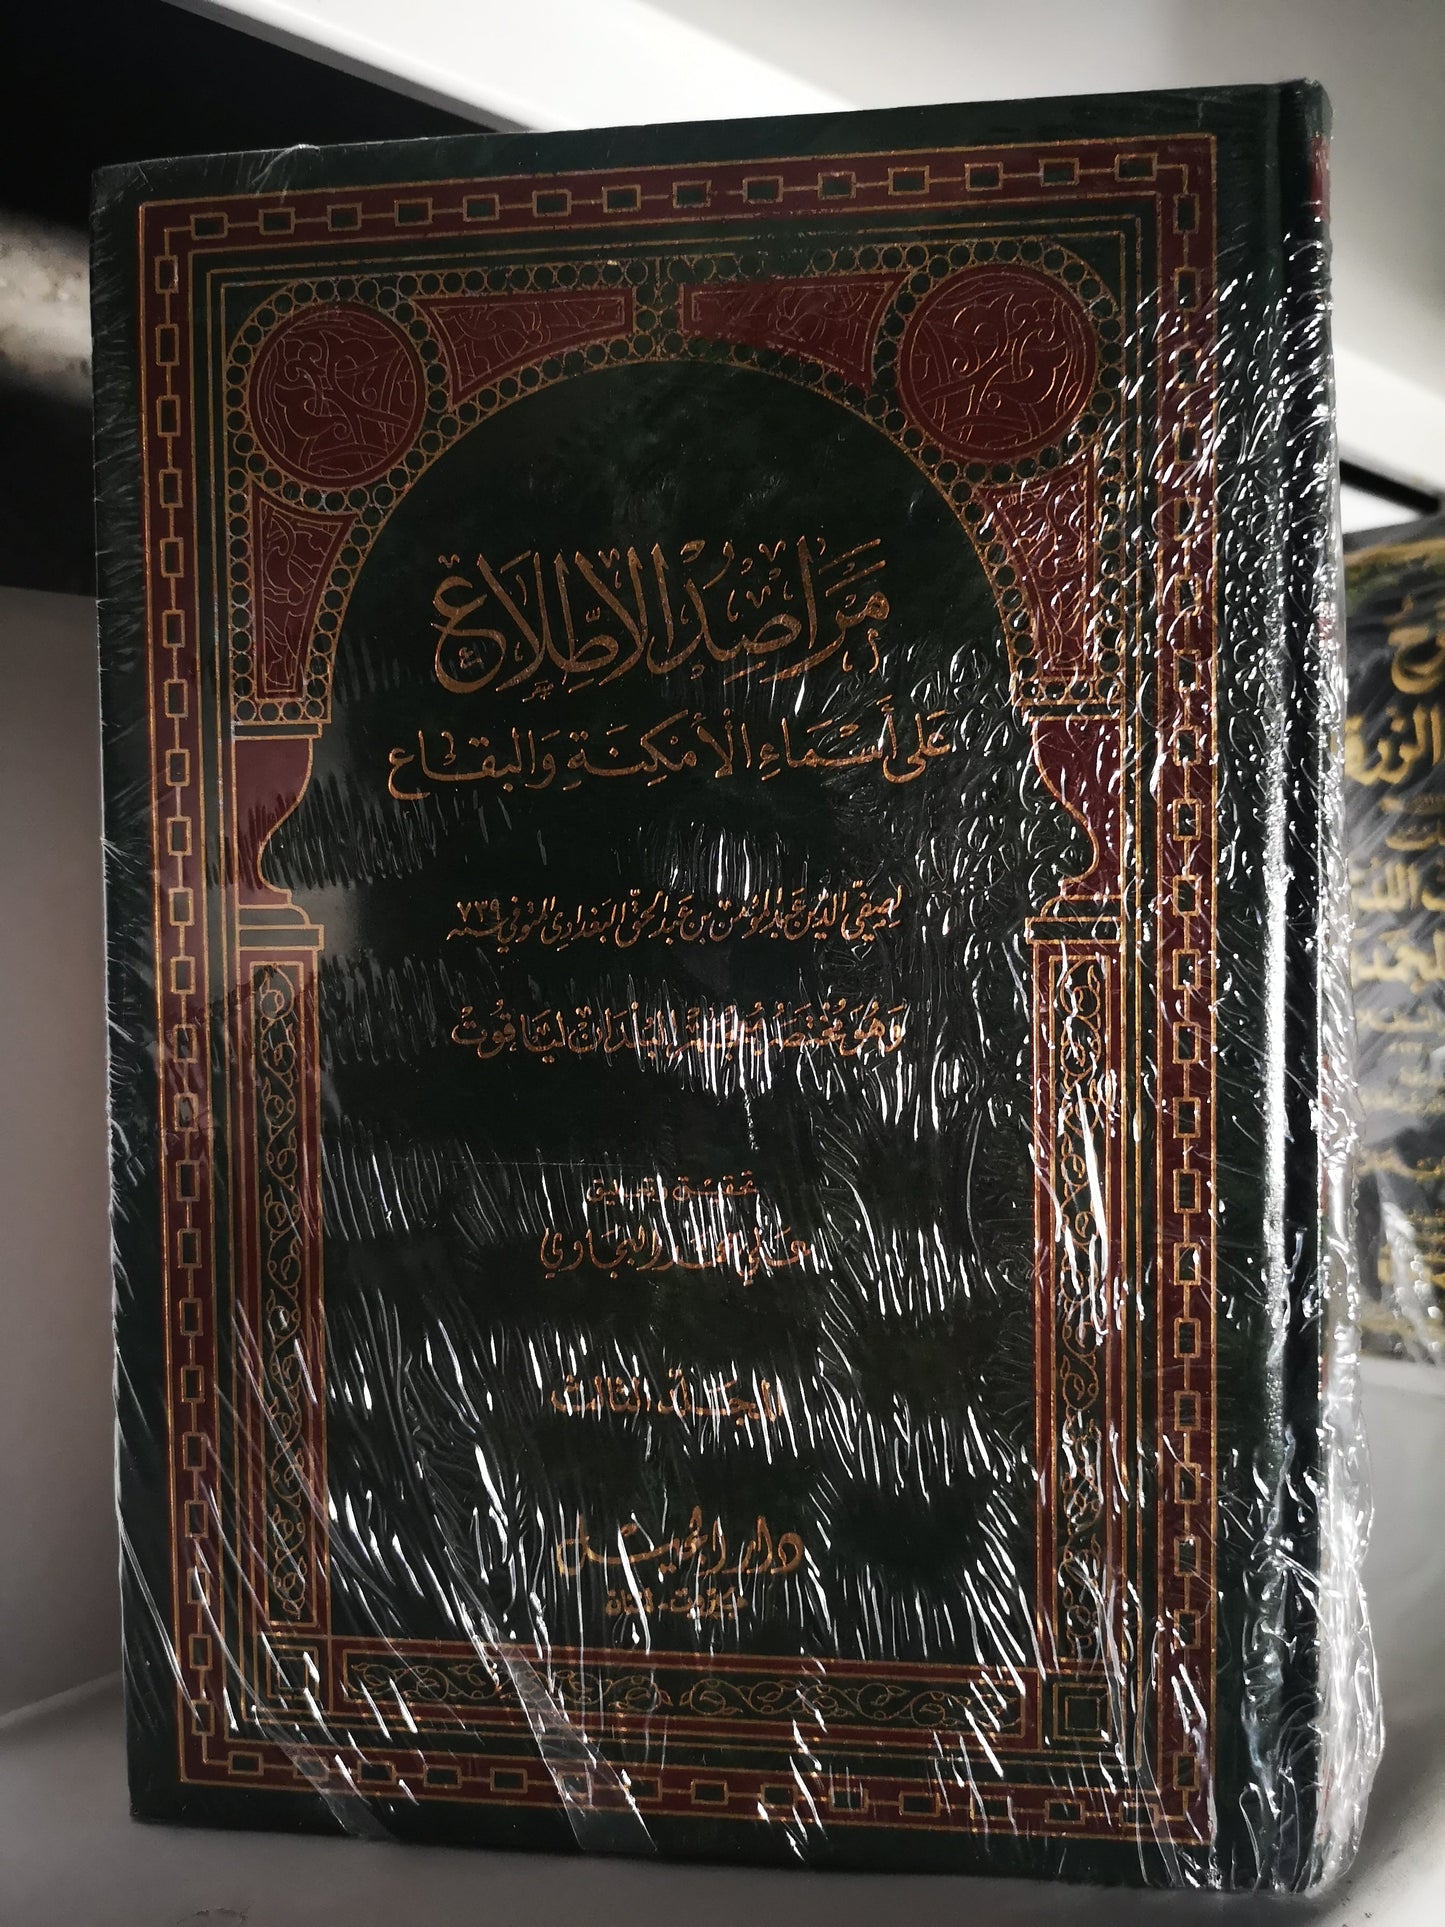 مَرَاصِدُ الاِطِّلَاع
عَلَى أَسْمَاءِ الأَمْكِنَةِ وَالبِقَاع
لصفيّ الدين عبد المؤمن بن عبد الحق البغدادي المتوفى سنة ٧٣٩
وَهُوَ مُخْتَصَرُ مُعْجَم البُلْدَان لِيَاقُوت
تحقيق وتعليق
علي محمد البجاوي
المجلد الثالث
دار الجيل
بيروت - لبنان